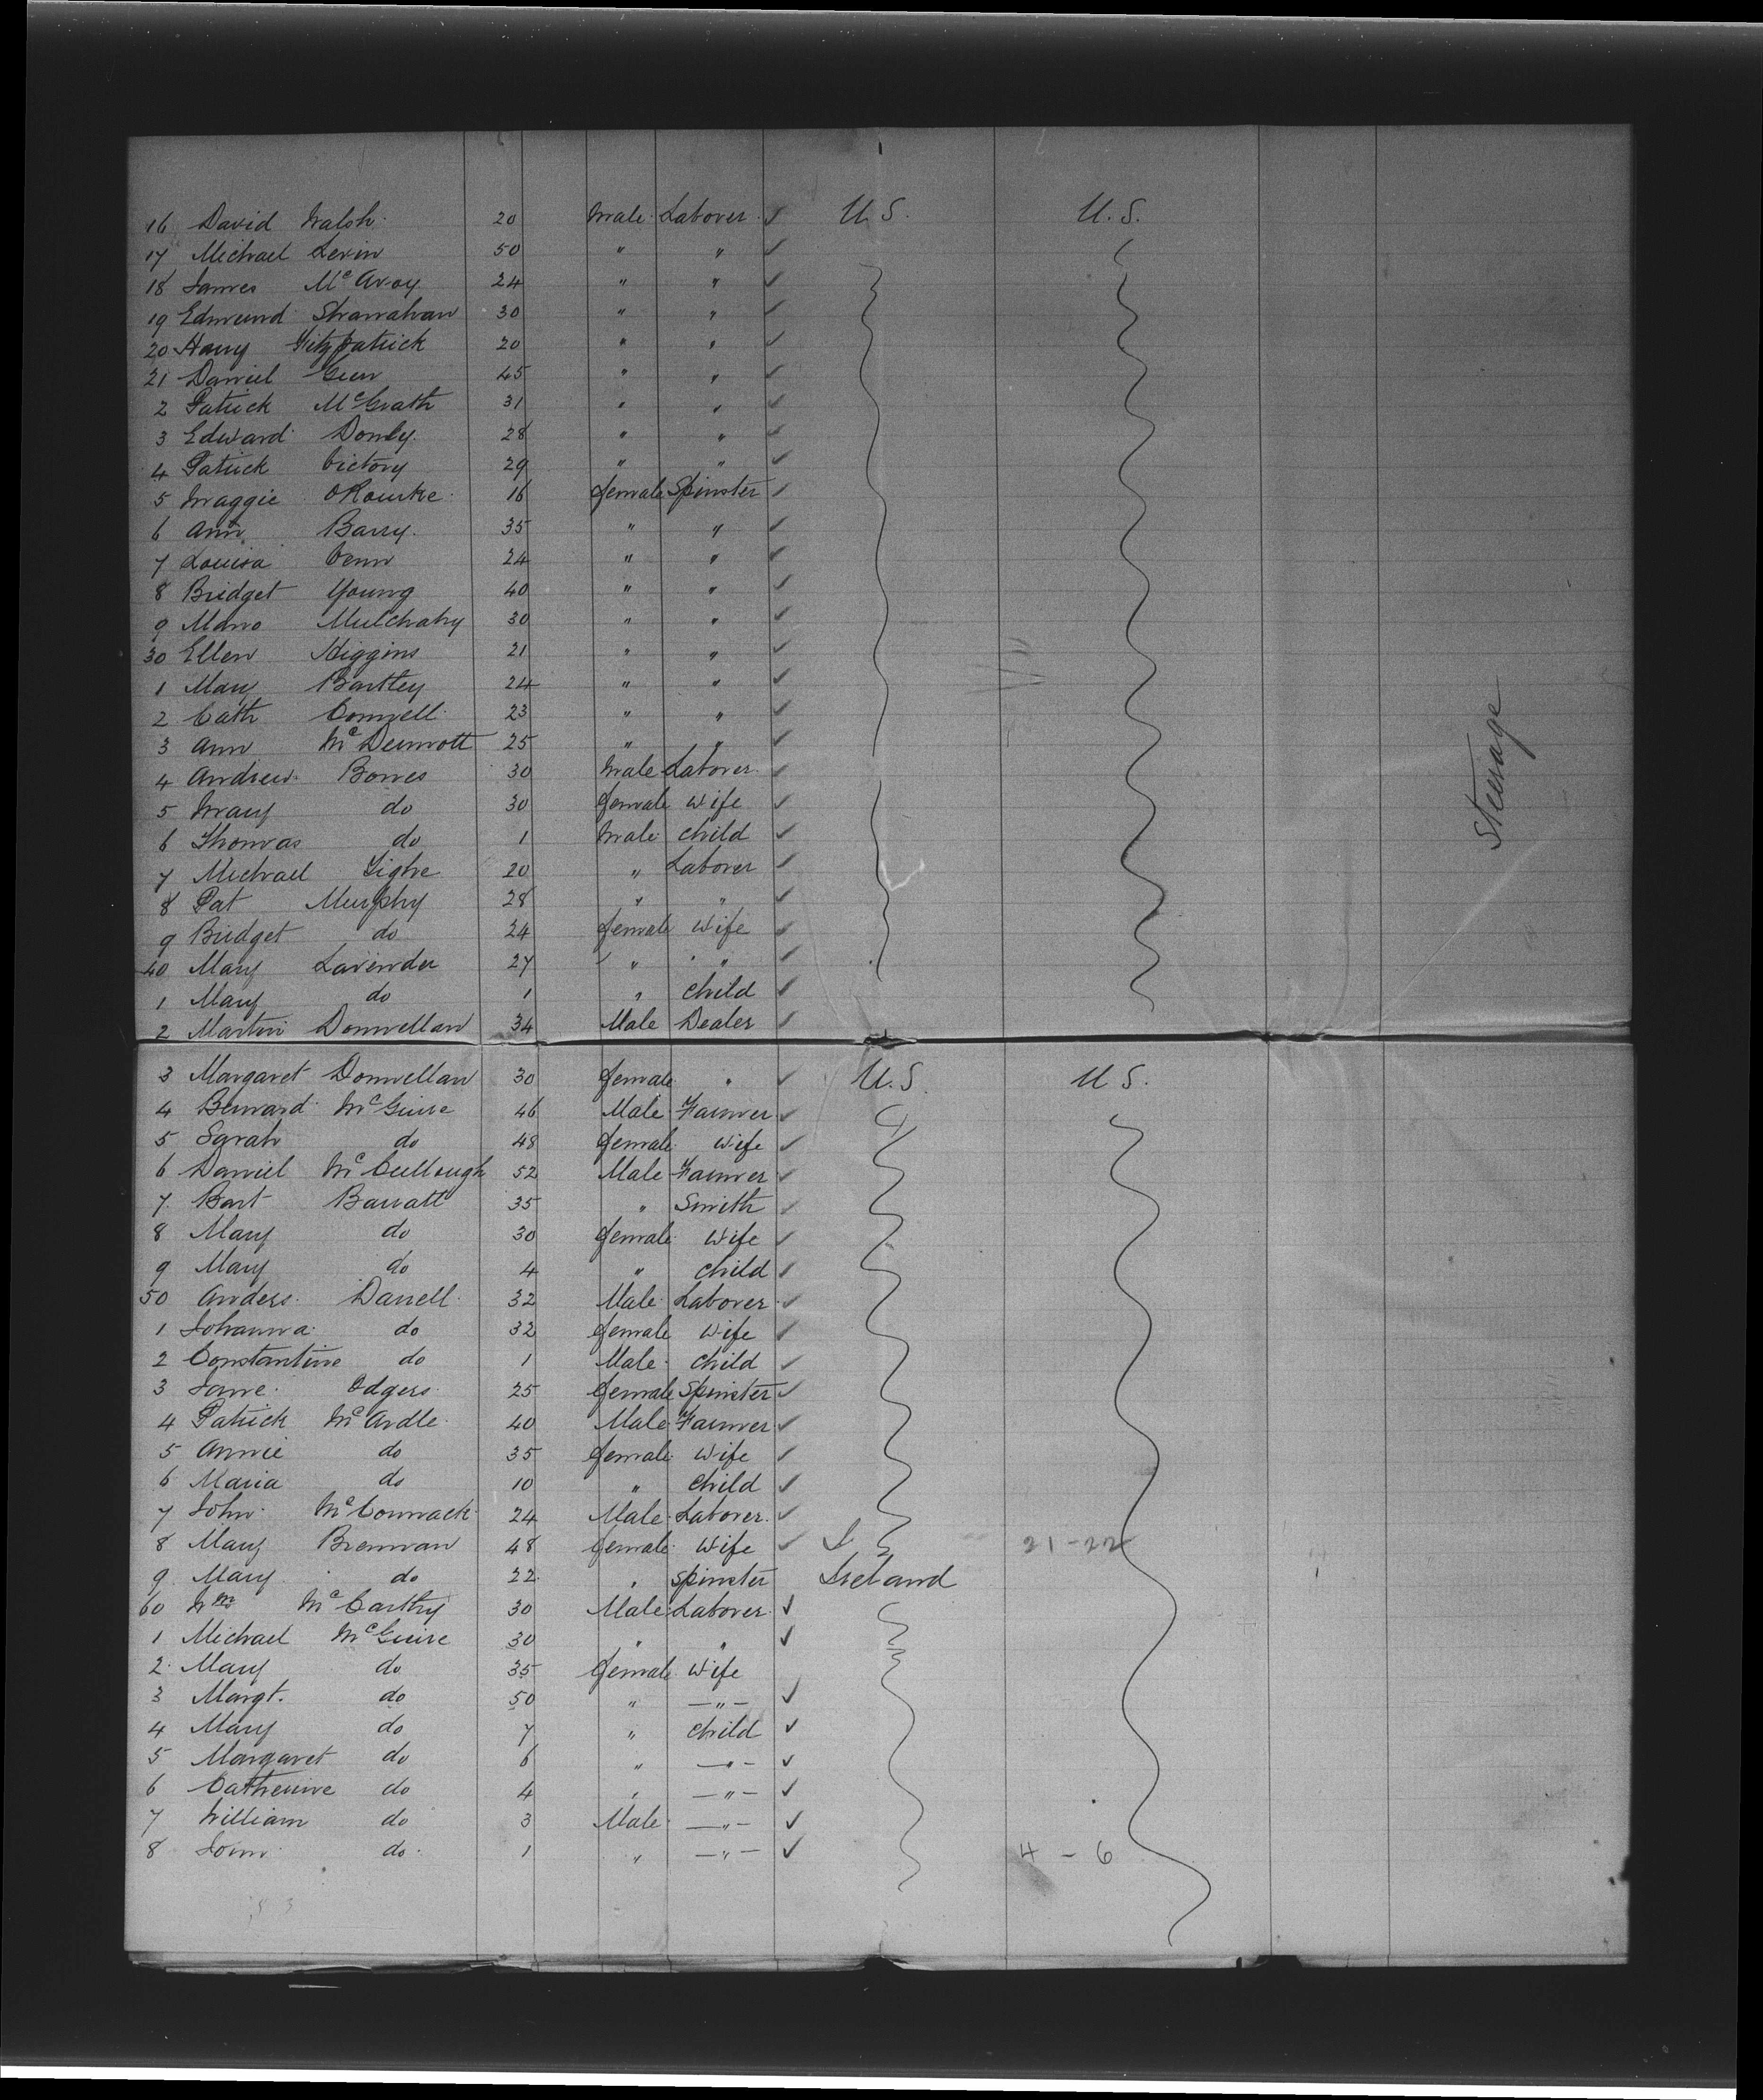 16 David Walsh 20 Male Laborer ✓ U.S. U.S.
17 Michael Levin 50 " " ✓
18 James McAvoy 24 " " ✓
19 Edmund Shanahan 30 " " ✓
20 Harry Fitzpatrick 20 " " ✓
21 Daniel Geer 45 " " ✓
2 Patrick McGrath 31 " " ✓
3 Edward Donly 28 " " ✓
4 Patrick Victory 29 " " ✓
5 Maggie ORourke 16 female Spinster ✓
6 Ann Barry 35 " " ✓
7 Louisa Venn 24 " " ✓
8 Bridget Young 40 " " ✓
9 Mulchahy 30 " " ✓
30 Ellen Higgins 21 " " ✓
1 Mary Bartley 24 " " ✓
2 Cath Conwell 23 " " ✓
3 Ann McDermott 25 " " ✓
4 Andrew Bowes 30 Male Laborer ✓
5 Mary do 30 female wife ✓
6 Thomas do 1 Male child ✓
7 Michael Tighe 20 " Laborer ✓
8 Pat Murphy 28 " " ✓
9 Bridget do 24 female wife ✓
40 Mary Lavender 27 " " ✓
1 Mary do 1 " child ✓
2 Martin Donnellan 34 Male Dealer ✓
Steerage
3 Margaret Donnellan 30 female " ✓ U.S. U.S.
4 Bernard McGuire 46 Male Farmer ✓
5 Sarah do 48 female wife ✓
6 Daniel McCullough 52 Male Farmer ✓
7 Bart Barratt 35 " Smith ✓
8 Mary do 30 female wife ✓
9 Mary do 4 " child ✓
50 Anders Darrell 32 Male Laborer ✓
1 Johanna do 32 female wife ✓
2 Constantine do 1 Male child ✓
3 Jane Odgers 25 female Spinster ✓
4 Patrick McArdle 40 Male Farmer ✓
5 Annie do 35 female wife ✓
6 Maria do 10 " child ✓
7 John McCormack 24 Male Laborer ✓
8 Mary Brennan 48 female wife ✓ 21-22
9 Mary do 22 " spinster Ireland
60 Wm McCarthy 30 Male Laborer ✓
1 Michael McGuire 30 " " ✓
2 Mary do 35 female wife
3 Margt. do 50 " —"— ✓
4 Mary do 7 " child ✓
5 Margaret do 6 " —"— ✓
6 Catherine do 4 " —"— ✓
7 William do 3 Male —"— ✓
8 John do 1 " —"— ✓ 4-6